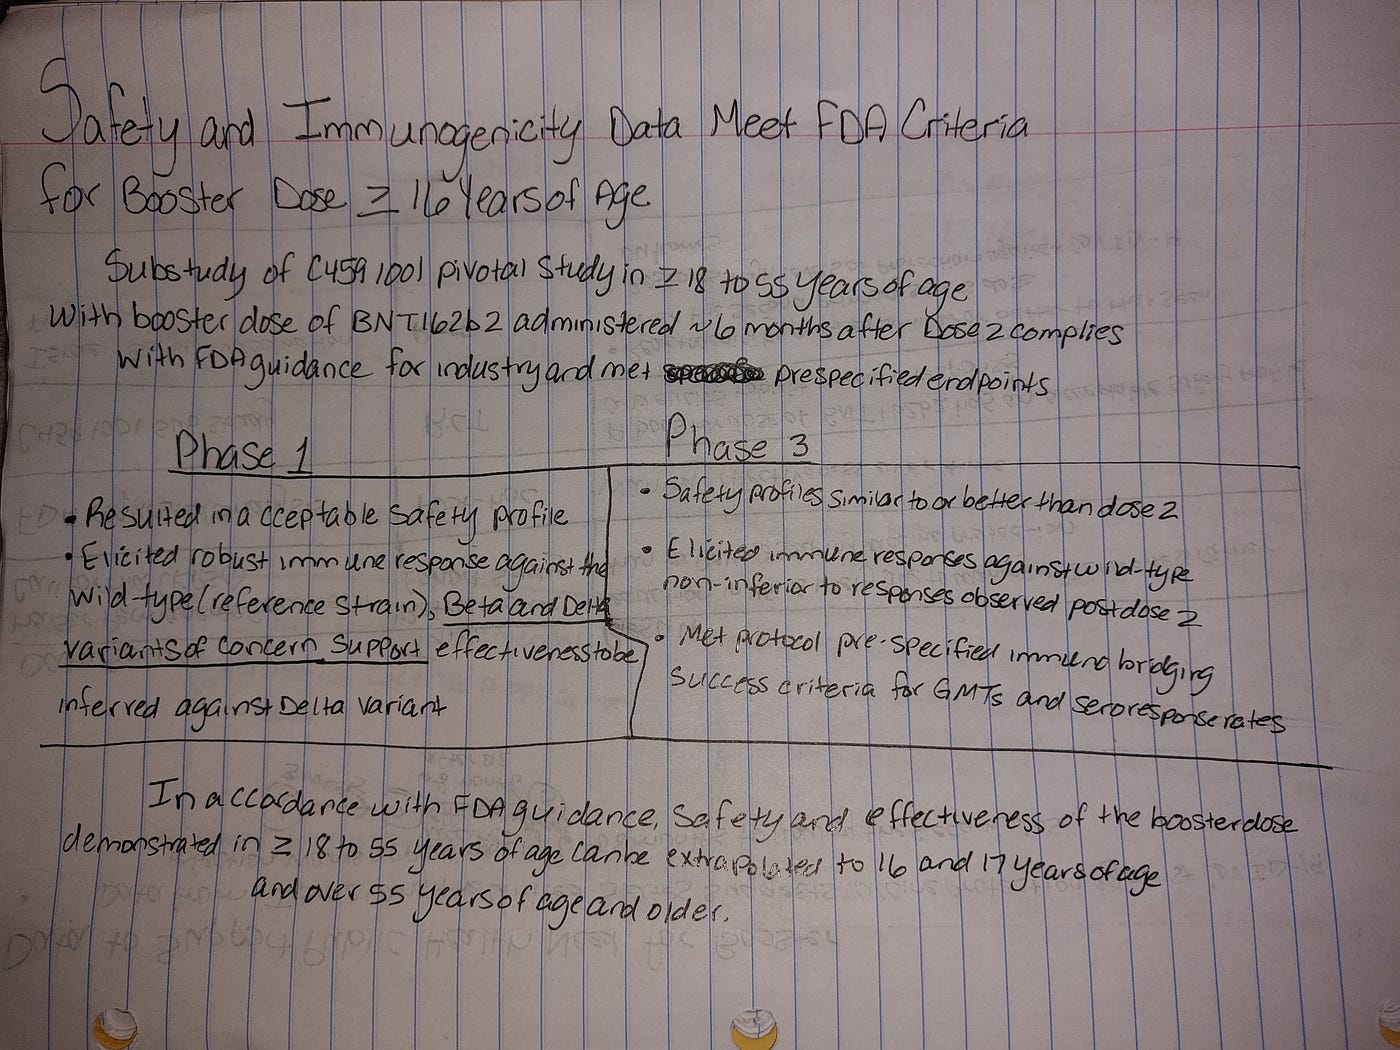 Safety and Immunogenicity Data Meet FDA Criteria
for Booster Dose ≥ 16 Years of Age
Substudy of C4591001 pivotal Study in ≥ 18 to 55 years of age
With booster dose of BNT162b2 administered ~6 months after Dose 2 complies
With FDA guidance for industry and met prespecified endpoints
Phase 1
• Resulted in acceptable Safety profile
• Elicited robust immune response against the
Wild-type (reference Strain), Beta and Delta
variants of concern Support effectiveness to be
inferred against Delta variant
Phase 3
• Safety profiles similar to or better than dose 2
• Elicited immune responses against wild-type
non-inferior to responses observed post dose 2
• Met protocol pre-specified immunobridging
Success criteria for GMTs and seroresponse rates
In accordance with FDA guidance, Safety and effectiveness of the booster dose
demonstrated in ≥ 18 to 55 years of age can be extrapolated to 16 and 17 years of age
and over 55 years of age and older.